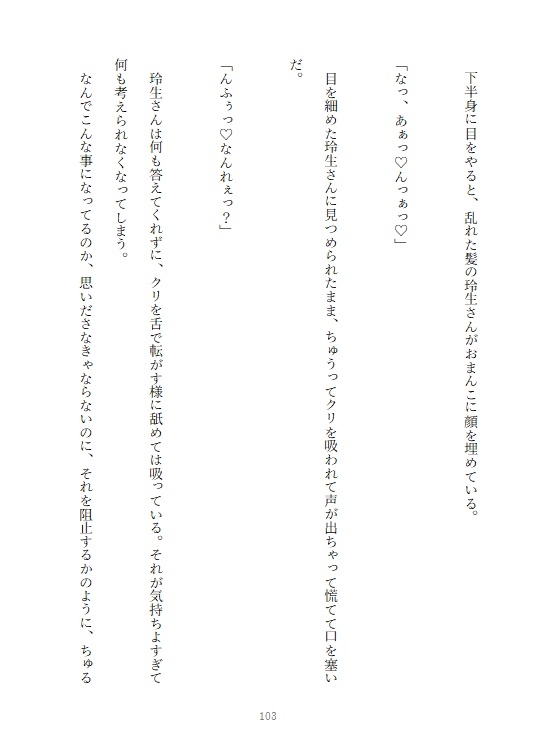 下半身に目をやると、乱れた髪の玲生さんがおまんこに顔を埋めている。
「なっ、あぁっ♡んっぁっ♡」
目を細めた玲生さんに見つめられたまま、ちゅうってクリを吸われて声が出ちゃって慌てて口を塞い
だ。
「んふぅっ♡なんれぇっ？」
玲生さんは何も答えてくれずに、クリを舌で転がす様に舐めては吸っている。それが気持ちよすぎて
何も考えられなくなってしまう。
なんでこんな事になってるのか、思いださなきゃならないのに、それを阻止するかのように、ちゅる
103